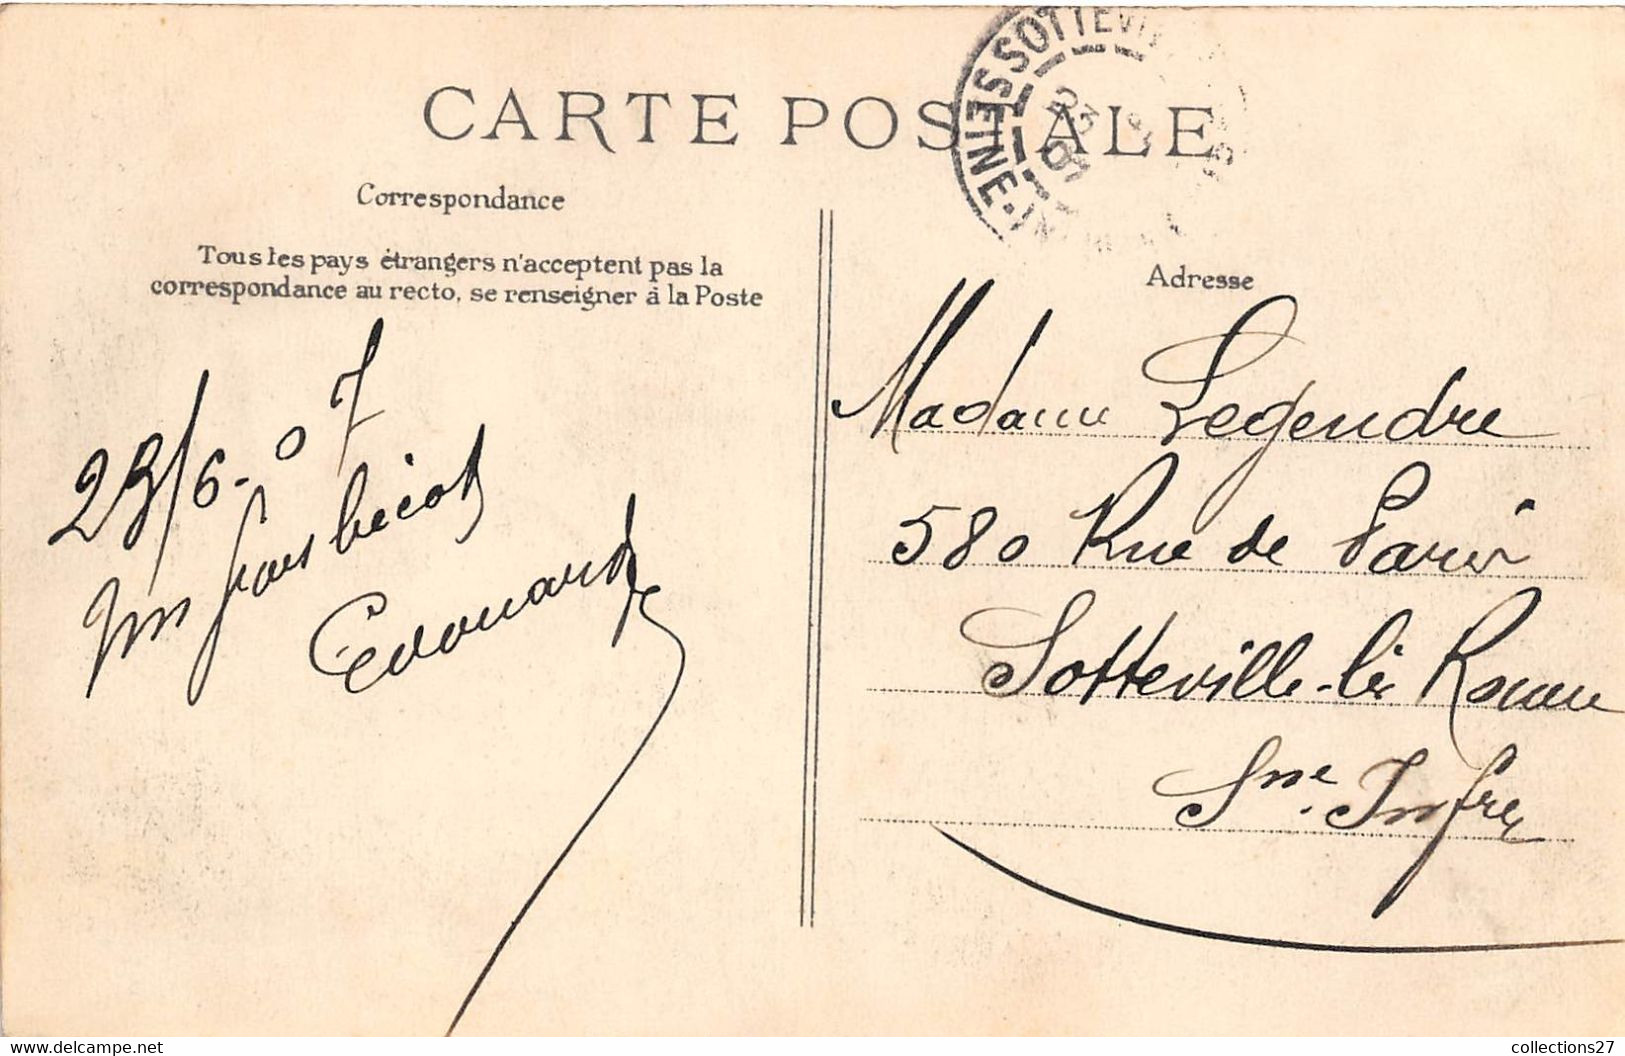 CARTE POSTALE
SOTTEVI
SEINE-IN
23
Correspondance
Tous les pays étrangers n'acceptent pas la
correspondance au recto, se renseigner à la Poste
Adresse
23/6-07
Un gros bécot
Edouard
Madame Legendre
580 Rue de Paris
Sotteville-lès Rouen
Sne. Infre
collections27